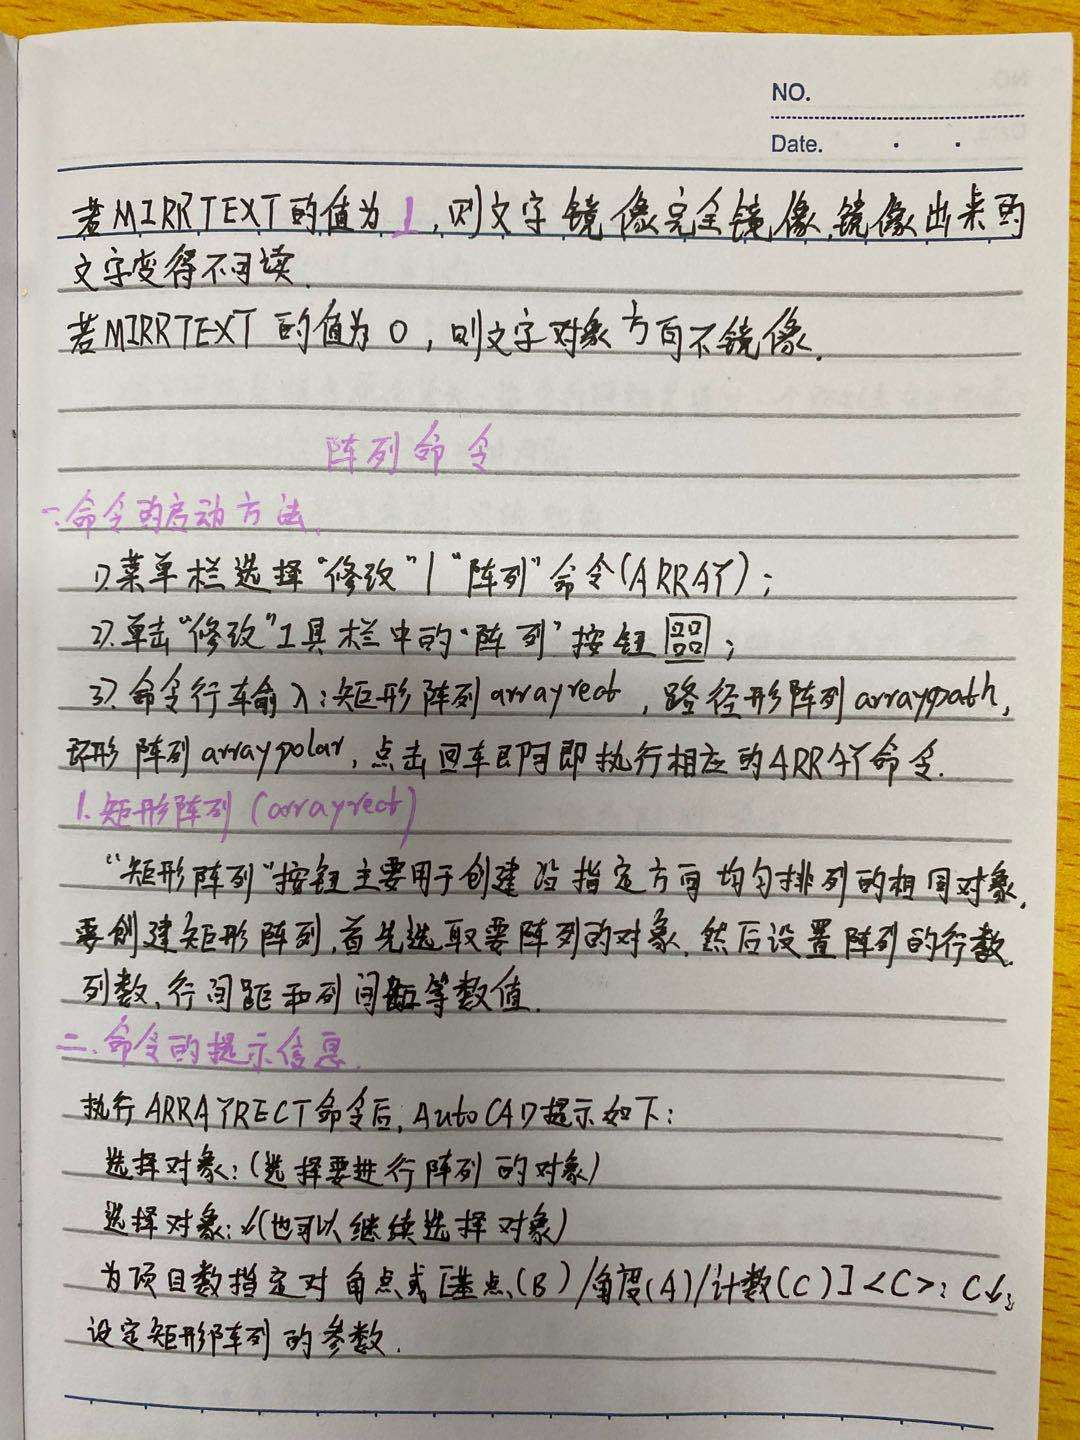 NO.
Date.
若MIRRTEXT的值为1,则文字镜像完全镜像,镜像出来的
文字变得不可读.
若MIRRTEXT的值为0,则文字对象方向不镜像.
阵列命令
一.命令的启动方法.
1).菜单栏选择"修改"|"阵列"命令(ARRAY);
2).单击"修改"工具栏中的"阵列"按钮;
3).命令行车输入:矩形阵列arrayrect,路径形阵列arraypath,
环形阵列arraypolar,点击回车即可即执行相应的ARRAY命令.
1.矩形阵列(arrayrect)
"矩形阵列"按钮主要用于创建沿指定方向均匀排列的相同对象,
要创建矩形阵列,首先选取要阵列的对象,然后设置阵列的行数.
列数,行间距和列间距等数值.
二.命令的提示信息.
执行ARRAYRECT命令后,AutoCAD提示如下:
选择对象:(选择要进行阵列的对象)
选择对象:↙(也可以继续选择对象)
为项目数指定对角点或[基点(B)/角度(A)/计数(C)]<C>:C↙;
设定矩形阵列的参数.